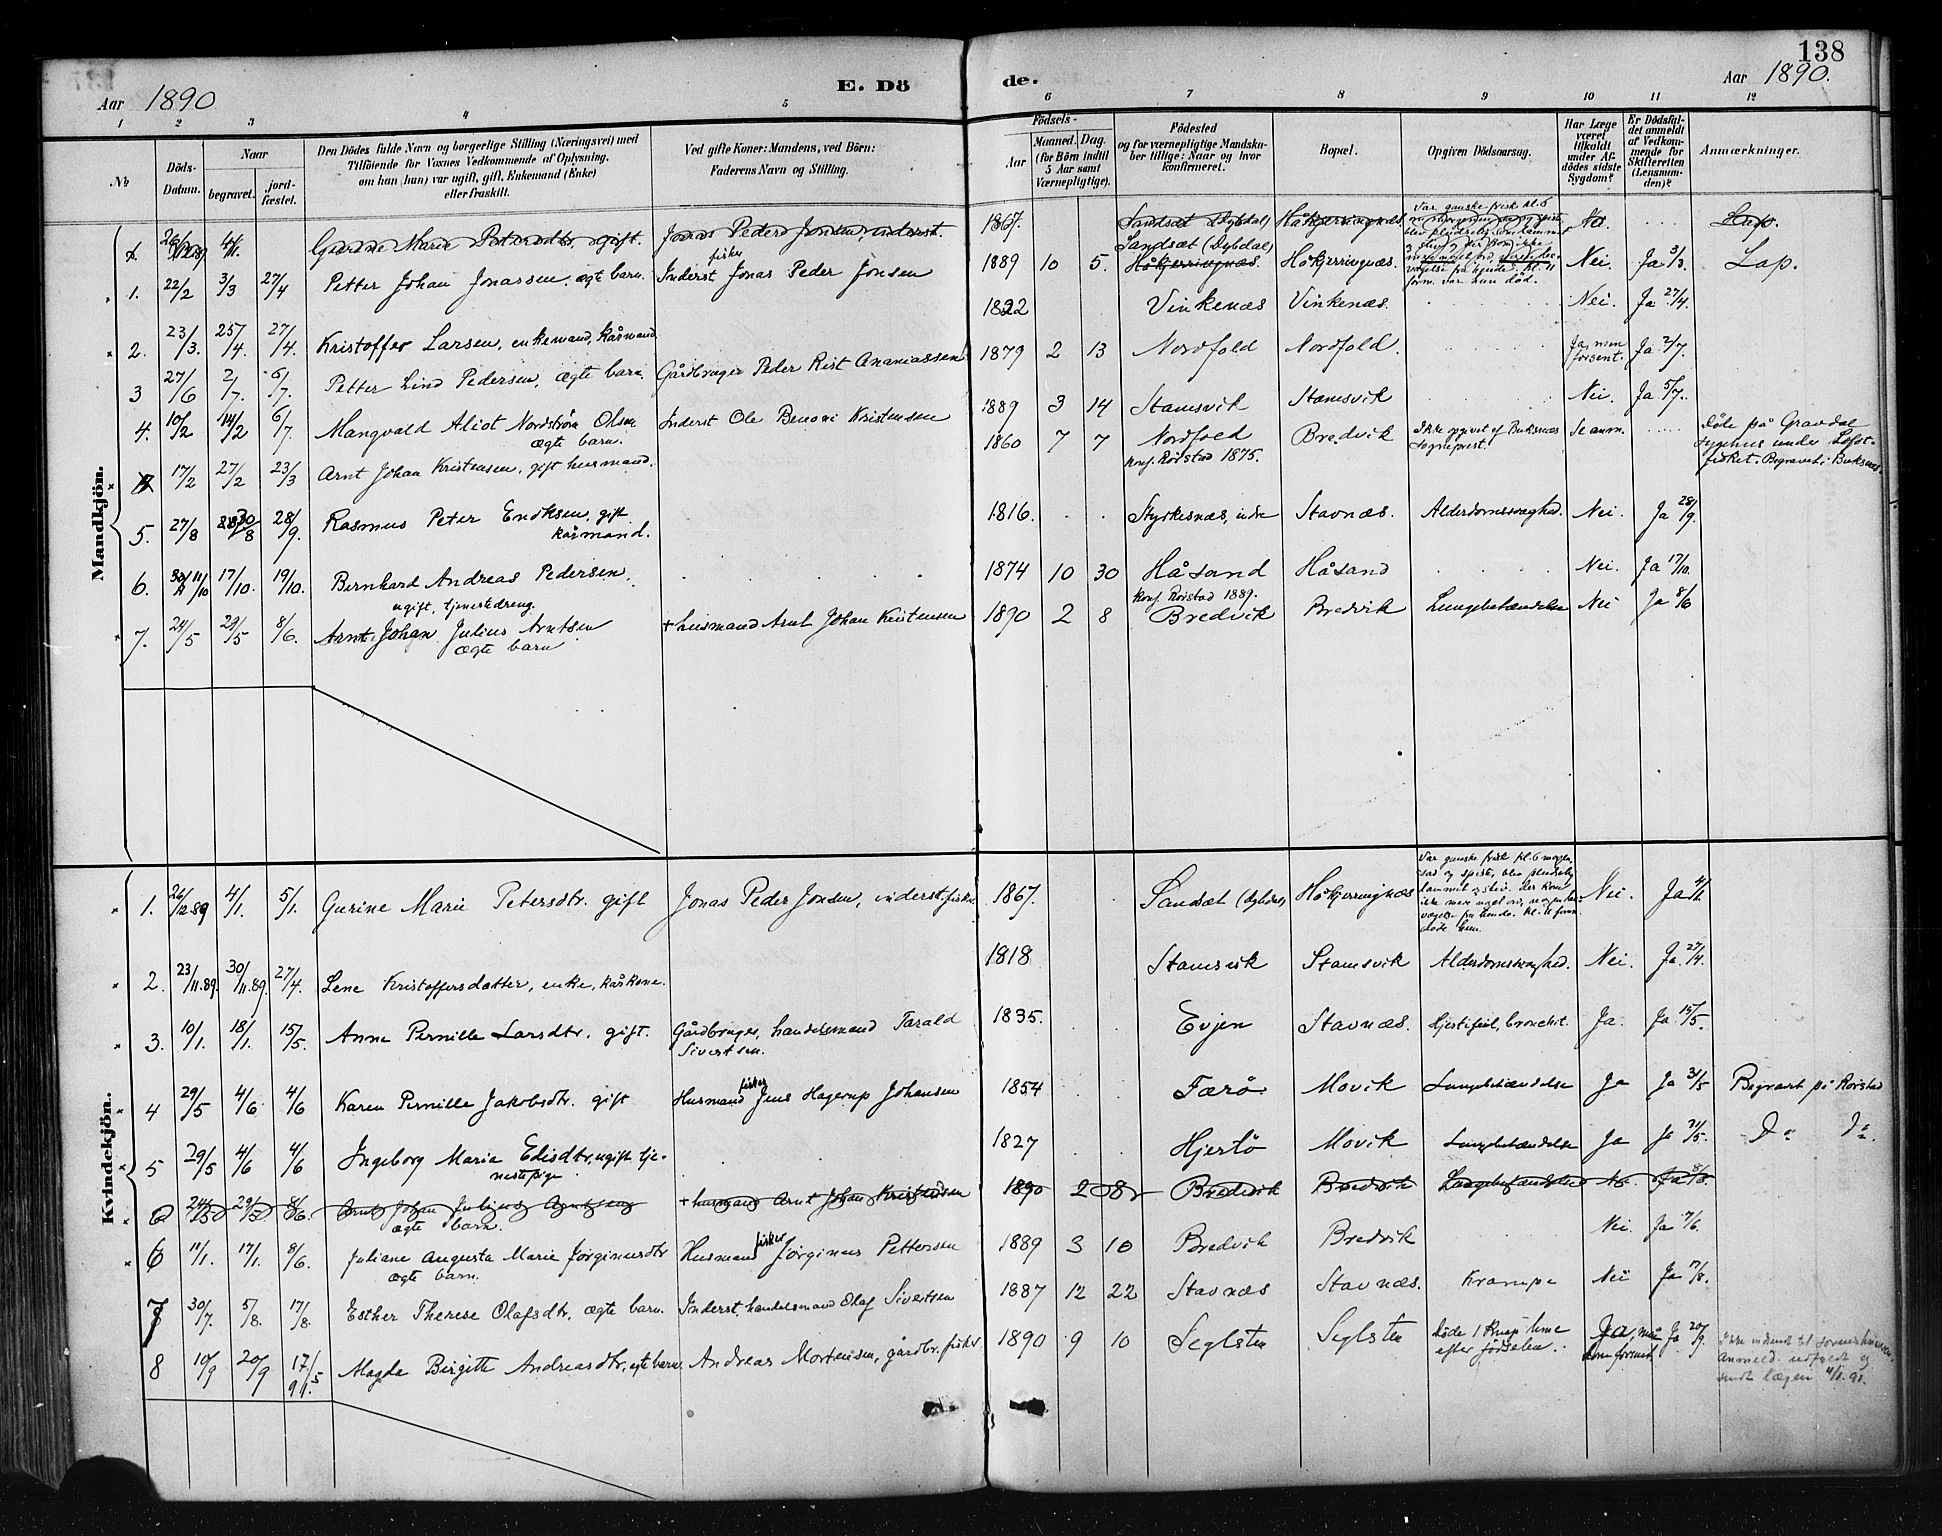 138
Aar 1890
E. Dö
de.
Aar 1890.
1 2 3 4 5 6 7 8 9 10 11 12
No
Döds-Datum.
Naar
begravet.
jord-fæstet.
Den Dödes fulde Navn og borgerlige Stilling (Næringsvei) med
Tilföiende for Voxnes Vedkommende af Oplysning,
om han (hun) var ugift, gift, Enkemand (Enke)
eller fraskilt.
Ved gifte Koner: Mandens, ved Börn:
Faderens Navn og Stilling.
Födsels-
Aar
Maaned. Dag.
(for Börn indtil
5 Aar samt
Værnepligtige).
Födested
og for værnepligtige Mandska-
ber tillige: Naar og hvor
konfirmeret.
Bopæl.
Opgiven Dödsaarsag.
Har Læge
været
tilkaldt
under Af-
dödes sidste
Sygdom?
Er Dödsfal-
det anmeldt
af Vedkom-
mende for
Skifteretten
(Lensman-
den)?
Anmærkninger.
Mandkjön.
Gurine Marie Petersdtr, gift. Jonas Peder Jonsen, inderst. 1867. Sandsæt (Dybdal) Håkjerringnæs. Lap.
1. 22/2 3/3 27/4 Petter Johan Jonassen, ægte barn. Inderst fisker Jonas Peder Jonsen 1889 10 5. Sandsæt (Dybdal) Håkjerringnæs. Håkjerringnæs. Nei. Ja 3/3. Lap.
2. 23/3. 25/4 27/4. Kristoffer Larsen, enkemand, kårmand. 1822 Vinkenæs Vinkenæs. Nei. Ja 27/4.
3 27/6 2/7. 6/7. Petter Lind Pedersen, ægte barn. Gårdbruger Peder Rist Ananiassen 1879 2 13 Nordfold Nordfold. Ja, men forsent. Ja 2/7.
4. 10/2 14/2 6/7 Mangvald Aliot Nordstrøm Olsen Inderst Ole Benoni Kristensen 1889 3 14 Stamsvik Stamsvik Nei. Ja 5/7.
ægte barn.
17/2 27/2 23/3 Arnt Johan Kristensen, gift husmand. 1860 7 7 Nordfold Bredvik Ikke opgivet af Buksnæs Sogneprest. Se anm. Døde på Gravdal
konf. Rörstad 1875. sygehus under Lofot-
fisket. Begravet i Buksnæs.
5. 27/8 30/8 28/9. Rasmus Peter Eriksen, gift 1816. Styrkesnæs, indre Stavnæs. Alderdomssvaghed. Nei. Ja 28/9.
kårmand.
6. 11/10 17/10. 19/10. Bernhard Andreas Pedersen 1874 10 30 Håsand Håsand Nei. Ja 17/10.
ugift, tjenestedreng. konf. Rörstad 1889.
7. 24/5 29/5 8/6. Arnt Johan Julius Arntsen + husmand Arnt Johan Kristensen 1890 2 8 Bredvik Bredvik Lungebetændelse Nei Ja 8/6
ægte barn
Kvindekjön.
1. 26/12 89 4/1. 5/1. Gurine Marie Petersdtr. gift Jonas Peder Jonsen, inderst, fisker 1867. Sandsæt (Dybdal) Håkjerringnæs Nei. Ja 4/1.
2. 23/11.89. 30/11.89. 27/4. Lene Kristoffersdatter, enke, kårkone. 1818 Stamsvik Stamsvik Alderdomssvaghed. Nei. Ja 27/4.
3. 10/1. 18/1. 15/5. Anne Pernille Larsdtr. gift. Gårdbruger, handelsmand Tarald 1835. Evjen Stavnæs. Hjertefeil, bronchit. Ja. Ja 15/5.
Sivertsen.
4 29/5 4/6 4/6 Karen Pernille Jakobsdtr. gift Husmand fisker Jens Hagerup Johansen 1854 Færö Movik Lungebetændelse Ja Ja 31/5 Begravet på Rörstad
5 29/5 4/6 4/6 Ingeborg Maria Edisdtr, ugift tje- 1827 Hjertö Movik Lungebetændelse Ja Ja 31/5. Do Do
nestepige
6 24/5 29/5 8/6. Arnt Johan Julius Arntsen + husmand Arnt Johan Kristensen 1890 2 8 Bredvik Bredvik Lungebetændelse Ja 8/6
ægte barn.
6 11/1. 17/1. 8/6. Juliane Augusta Marie Jörginusdtr Husmand fisker Jörginus Pettersen 1889 3 10 Bredvik Bredvik Nei Ja 7/6
ægte barn.
7 30/7. 5/8. 17/8. Esther Therese Olafsdtr, ægte barn. Inderst, handelsmand Olaf Sivertsen 1887 12 22 Stavnæs Stavnæs. Krampe Nei Ja 17/8.
8 10/9 20/9 17/5 91. Magda Birgitte Andreasdtr, egte barn. Andreas Mortensen, gårdbr. fisker 1890 9 10 Seglsten Seglsten Døde 1 knap time Ja, men Ja 20/9.
efter fødselen. kom forsent